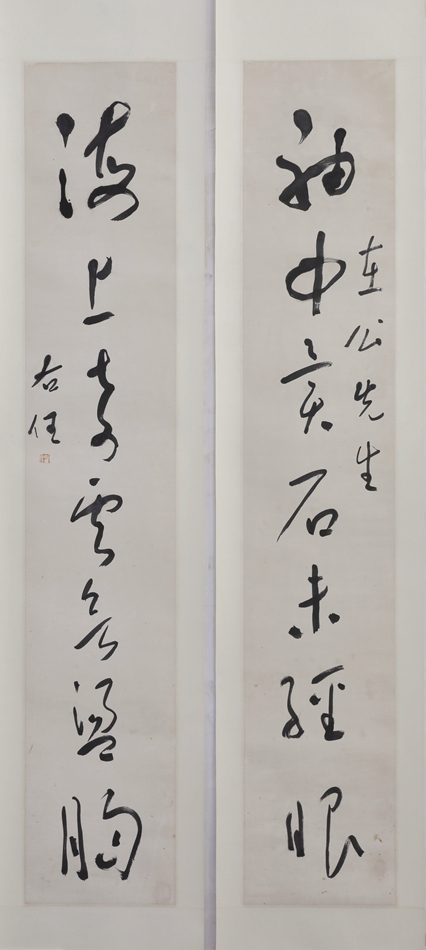 袖中異石未經眼
在公先生
海上奇雲欲盪胸
右任